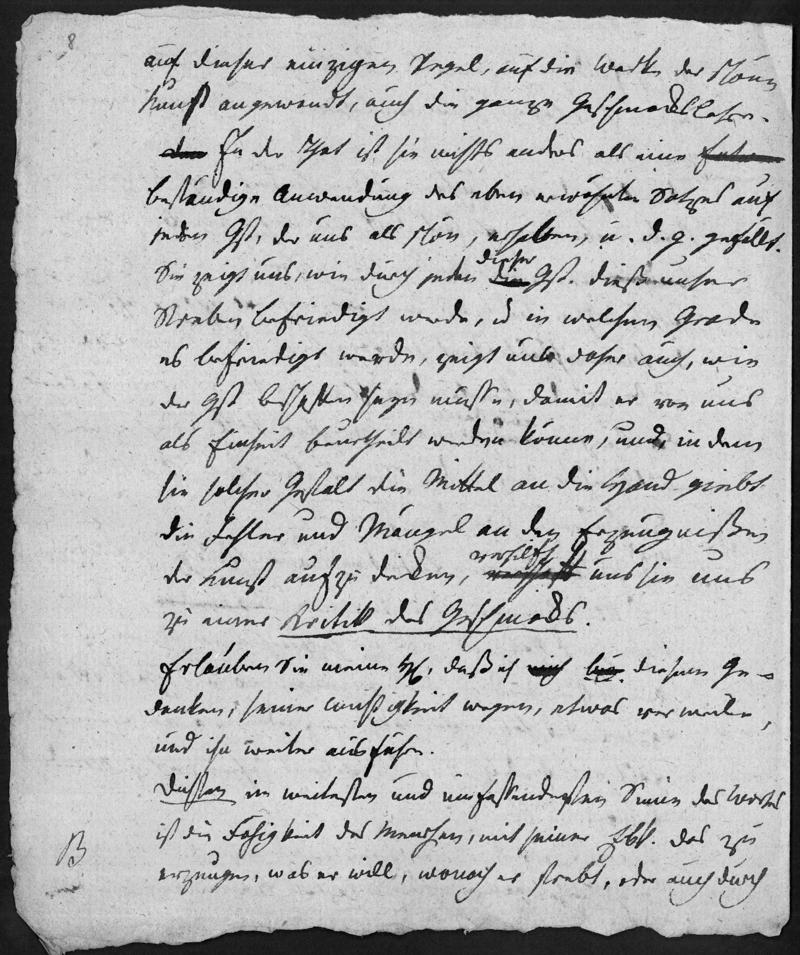 8
auf dieser einzigen Regel, auf die Werke der schönen
Kunst angewandt, auch die ganze Geschmackslehre.
In der That ist sie nichts anders als eine
beständige Anwendung des eben erwähnten Satzes auf
jeden Gst, der uns als schön, erhaben, u. d. g. gefällt.
Sie zeigt uns, wie durch jeden dieser Gst. dieß unser
Streben befriedigt werde, u in welchem Grade
es befriedigt werde, zeigt uns daher auch, wie
der Gst beschaffen seyn müsse, damit er von uns
als Einheit beurtheilt werden könne, und, indem
sie solcher Gestalt die Mittel an die Hand giebt
die Fehler und Mängel an den Erzeugnißen
der Kunst aufzudecken, verhilft uns sie uns
zu einer Kritik des Geschmacks.
Erlauben Sie meine HH, daß ich bey diesem Ge-
danken, seiner Wichtigkeit wegen, etwas verweile,
und ihn weiter ausführe.
im weitesten und umfassendesten Sinne des Wortes
ist die Fähigkeit des Menschen, mit seiner das zu
erzeugen, was er will, wonach er strebt, oder auch durch
B